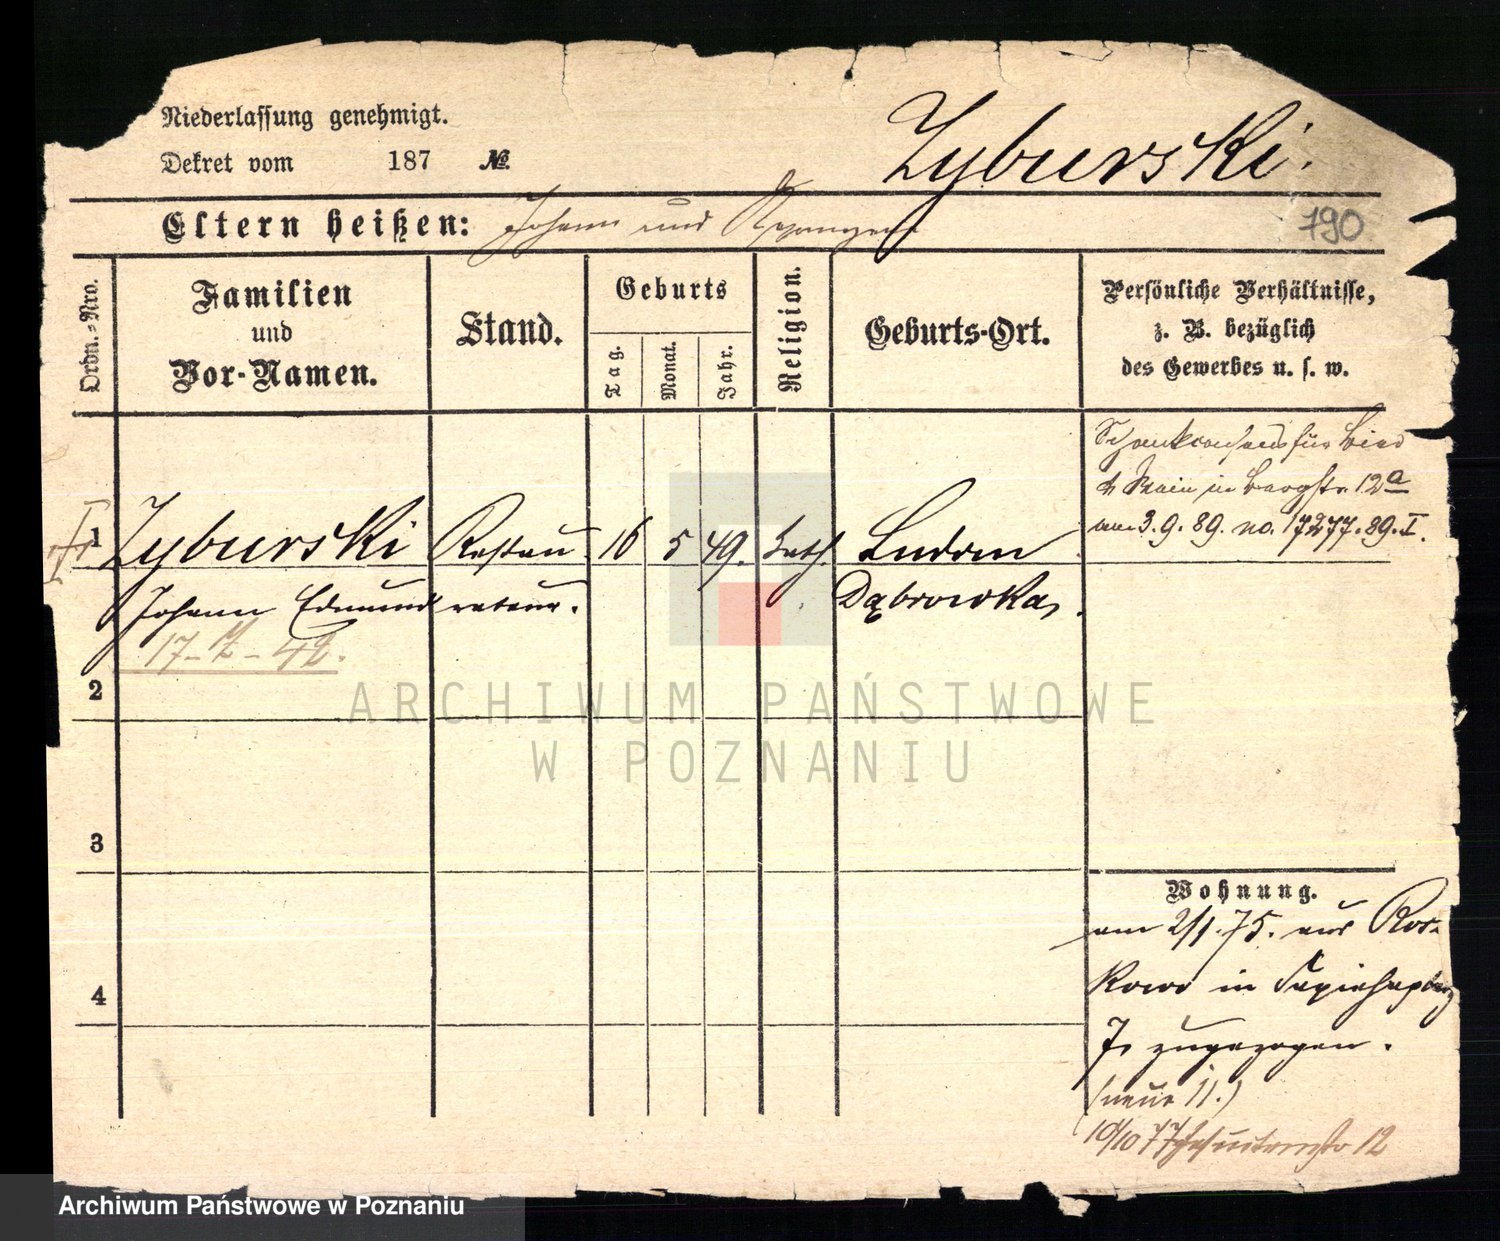 Niederlassung genehmigt.
Dekret vom 187 №
Zyburski.
Eltern heißen: Johann und
190
Ordn.-Nro.
Familien
und
Vor-Namen.
Stand.
Geburts
Tag.
Monat.
Jahr.
Religion.
Geburts-Ort.
Persönliche Verhältnisse,
z. B. bezüglich
des Gewerbes u. s. w.
Schankconsens für Bier
& Wein in Bergstr. 12a
vom 3.9.89. no. 17277.89.I.
1 Zyburski Restau 16 5 49. kath. Ludom
Johann Edmund rateur. Dąbrowka.
17- - 42.
2
3
4
Wohnung.
am 2/1.75. aus Ros-
kowo in Sapiehaplatz
7. zugezogen.
(neue 11.)
10/10 77 Jesuitenstr 12
ARCHIWUM PAŃSTWOWE
W POZNANIU
Archiwum Państwowe w Poznaniu